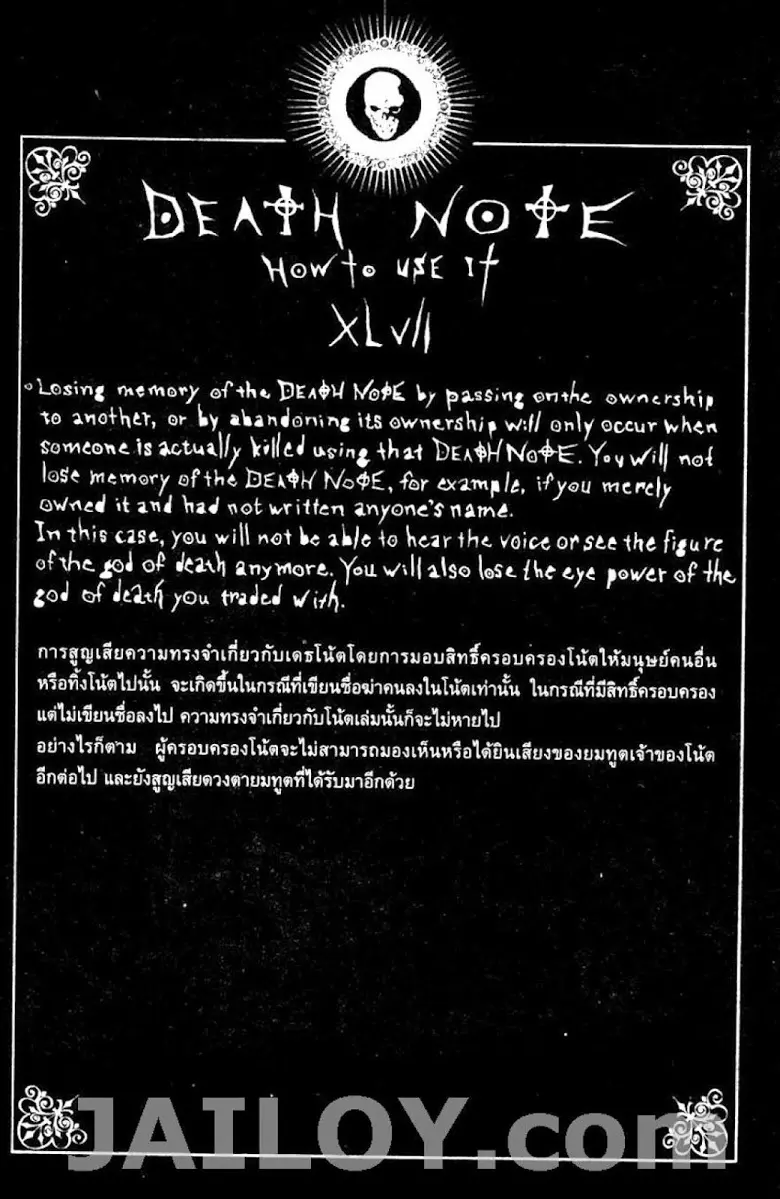 DEATH NOTE
HOW to USE It
XLVII
Losing memory of the DEATH NOTE by passing on the ownership
to another, or by abandoning its ownership will only occur when
someone is actually killed using that DEATH NOTE. You will not
lose memory of the DEATH NOTE, for example, if you merely
owned it and had not written anyone's name.
In this case, you will not be able to hear the voice or see the figure
of the god of death anymore. You will also lose the eye power of the
god of death you traded with.
การสูญเสียความทรงจำเกี่ยวกับเดธโน้ตโดยการมอบสิทธิ์ครอบครองโน้ตให้มนุษย์คนอื่น
หรือทิ้งโน้ตไปนั้น จะเกิดขึ้นในกรณีที่เขียนชื่อฆ่าคนลงในโน้ตเท่านั้น ในกรณีที่มีสิทธิ์ครอบครอง
แต่ไม่เขียนชื่อลงไป ความทรงจำเกี่ยวกับโน้ตเล่มนั้นก็จะไม่หายไป
อย่างไรก็ตาม ผู้ครอบครองโน้ตจะไม่สามารถมองเห็นหรือได้ยินเสียงของยมทูตเจ้าของโน้ต
อีกต่อไป และยังสูญเสียดวงตายมทูตที่ได้รับมาอีกด้วย
JAILOY.com